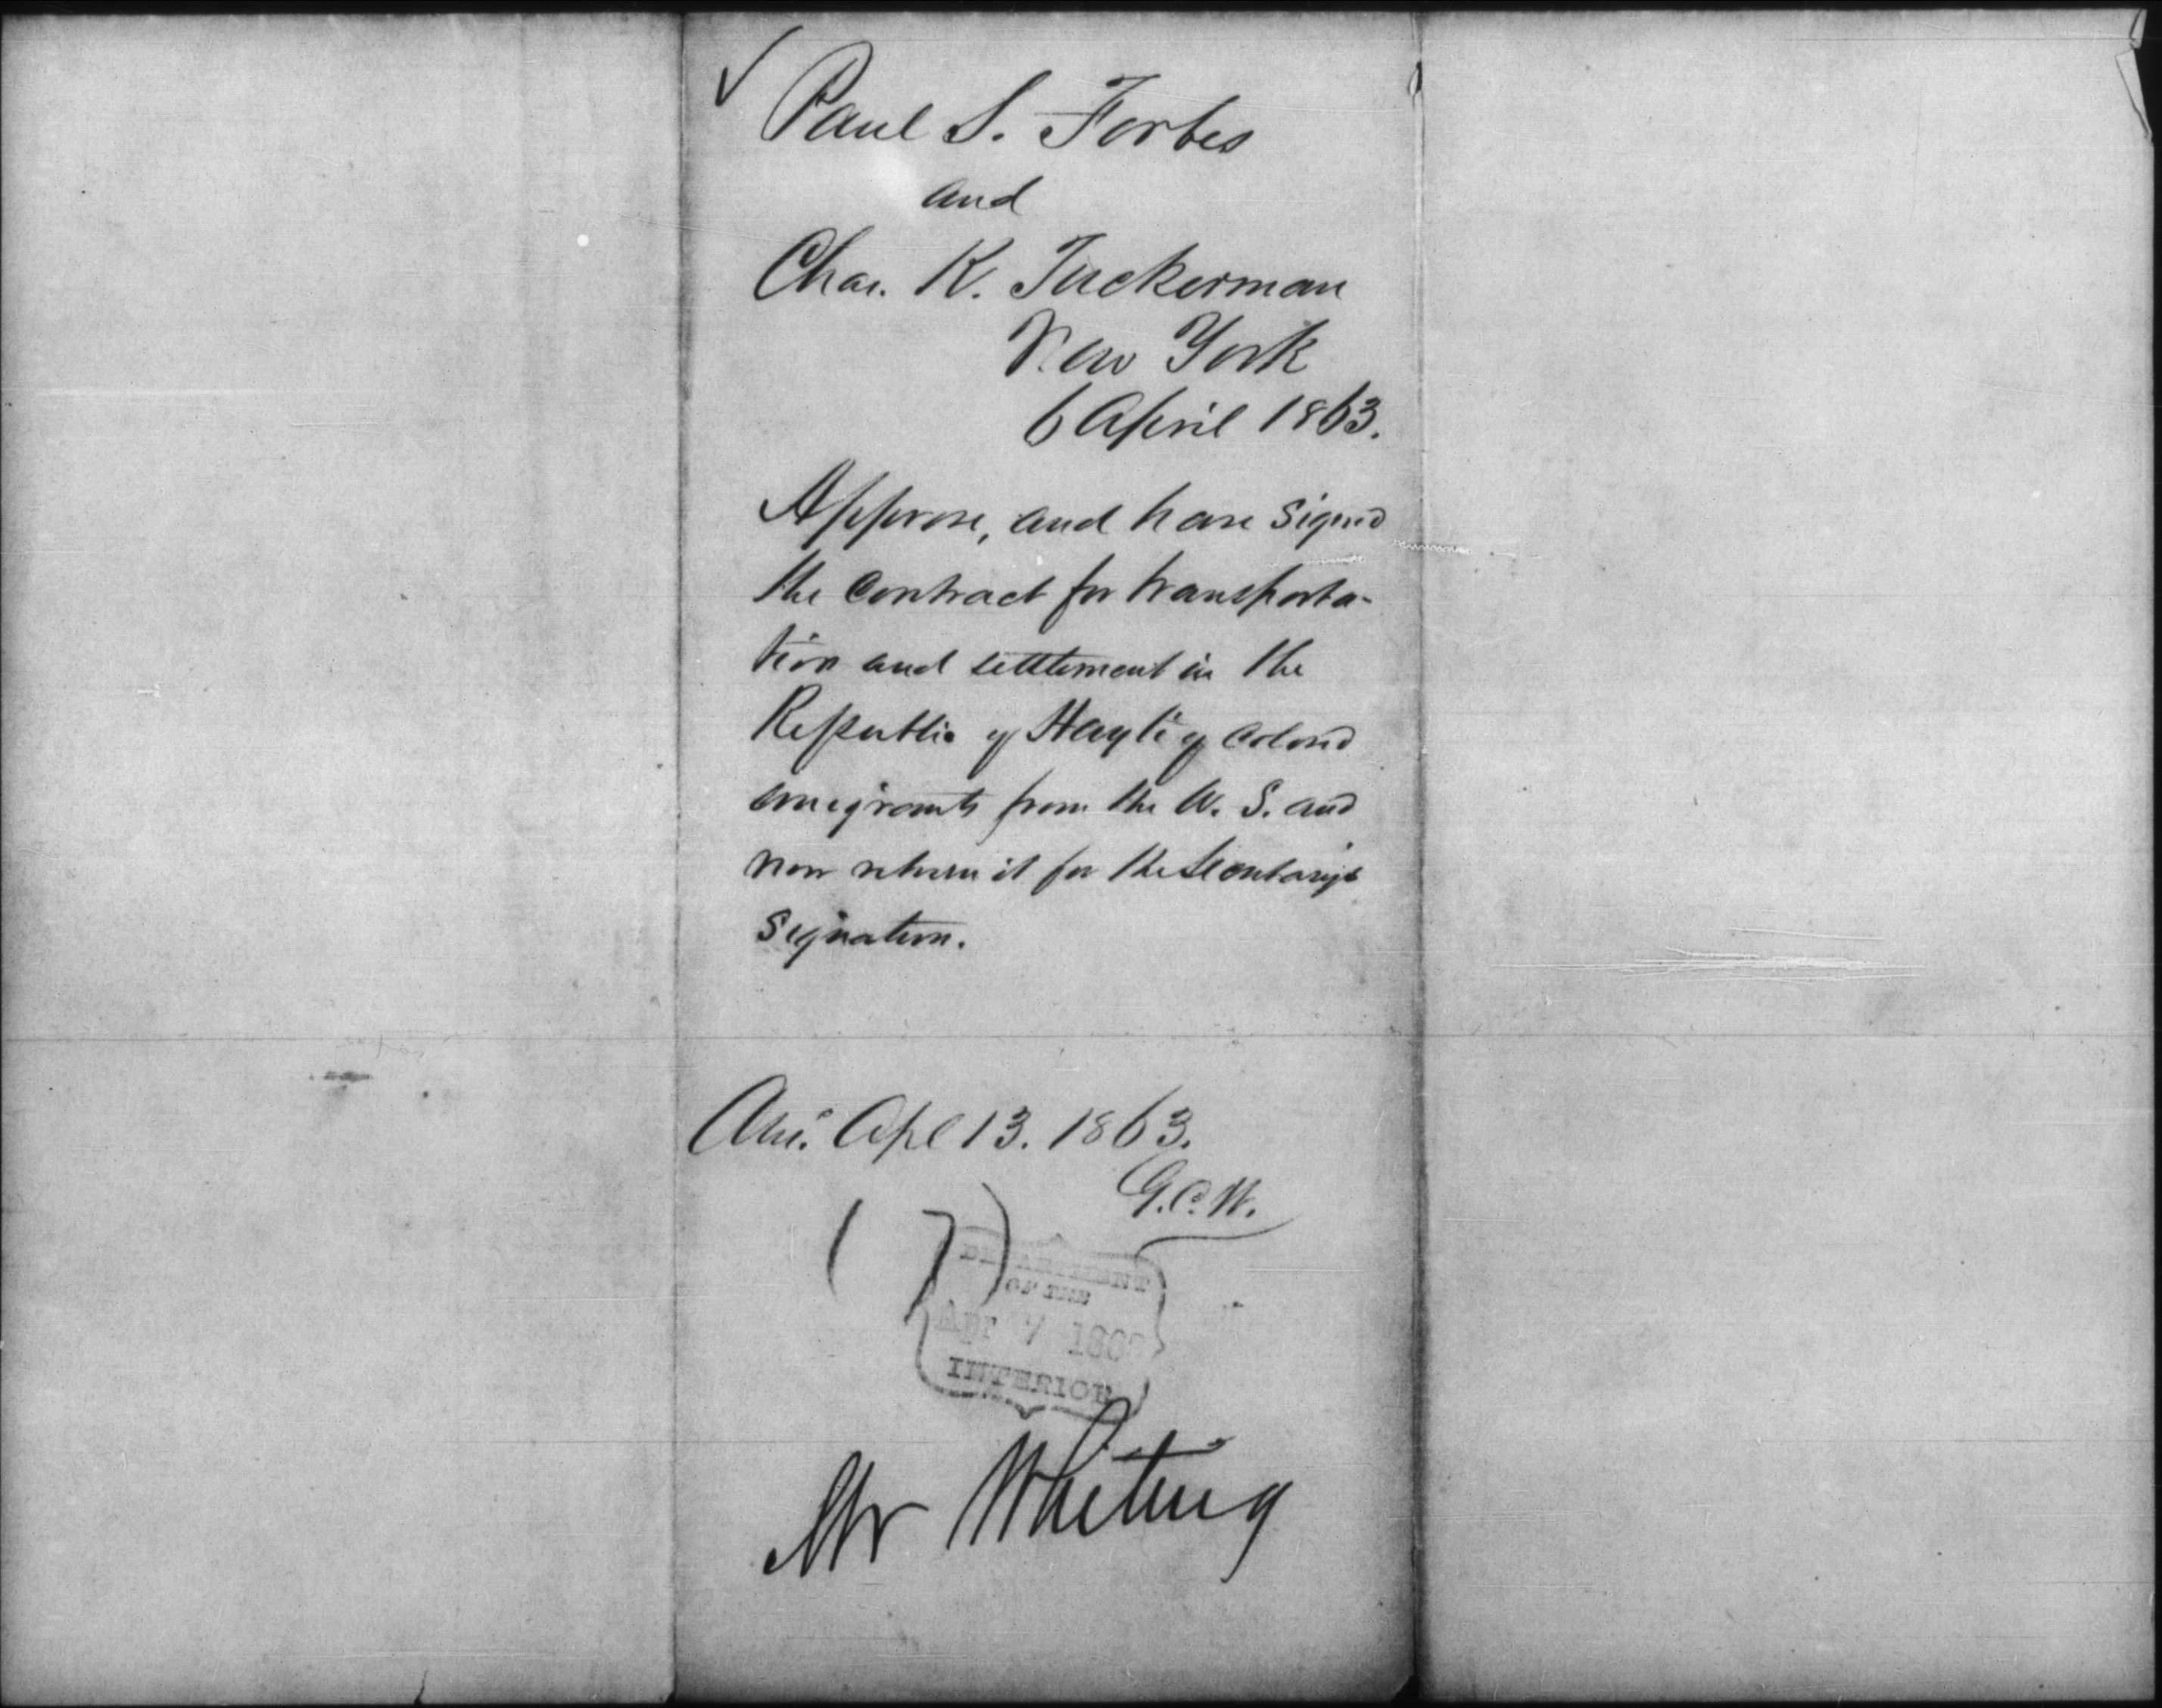 Paul S. Forbes
and
Chas. K. Tuckerman
New York
6 April 1863.
Approve, and have signed
the contract for transporta-
tion and settlement in the
Republic of Hayti of colored
emigrants from the U. S. and
now return it for the Secretary's
signature.
Ans. Apl 13. 1863.
G.C.W.
(7)
DEPARTMENT
OF THE
APR 7 1863
INTERIOR
Mr Whiting